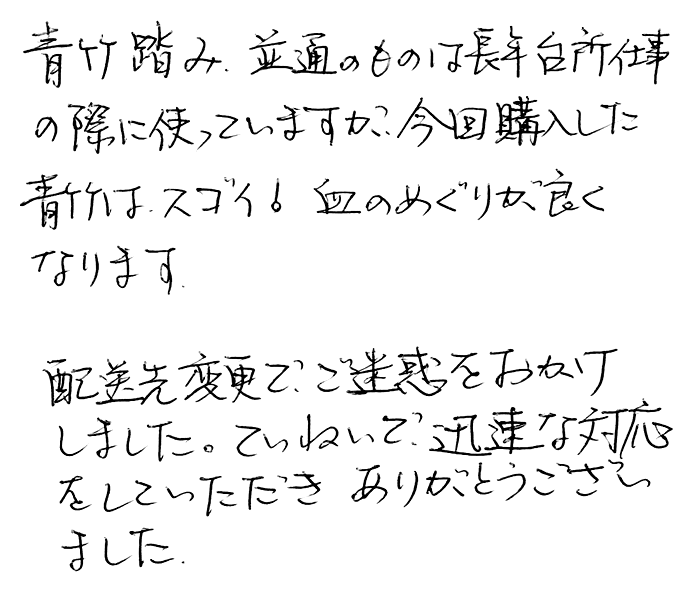 青竹踏み、並通のものは長年台所仕事
の際に使っていますが、今回購入した
青竹は、スゴイ! 血のめぐりが良く
なります。
配送先変更で、ご迷惑をおかけ
しました。ていねいで、迅速な対応
をしていただき ありがとうござい
ました。